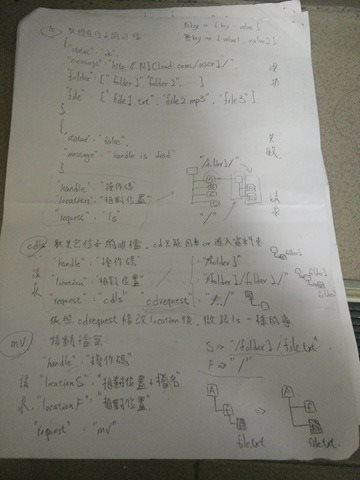 ls 狀態包括子的回檔
有key = { key : value }
無key = [ value1, value2 ]
{
"status" : "ok",
"message" : "http://N3Cloud.com/user1/",
"folder" : ["folder1", "folder2", ],
"file" : ["file1.txt", "file2.mp3", "file3"]
}
成功
{
"status" : "false",
"message" : "handle is dead"
}
失敗
"handle" : "操作碼"
"location" : "相對位置"
"request" : "ls"
"/folder1/"
"/"
請求
cdls
"handle" : "操作碼"
"location" : "相對位置"
"request" : "cdls"
"cdrequest"
請求
"/folder1"
"/folder1/folder1/"
"../"
依照 cdrequest 修改location後, 做起ls一樣的事
mv 移動檔案
"handle" : "操作碼"
請 "locationS" : "相對位置+檔名"
求 "locationF" : "相對位置"
"request" : "mv"
S => "/folder1/file.txt"
F => "/"
file.txt
file.txt